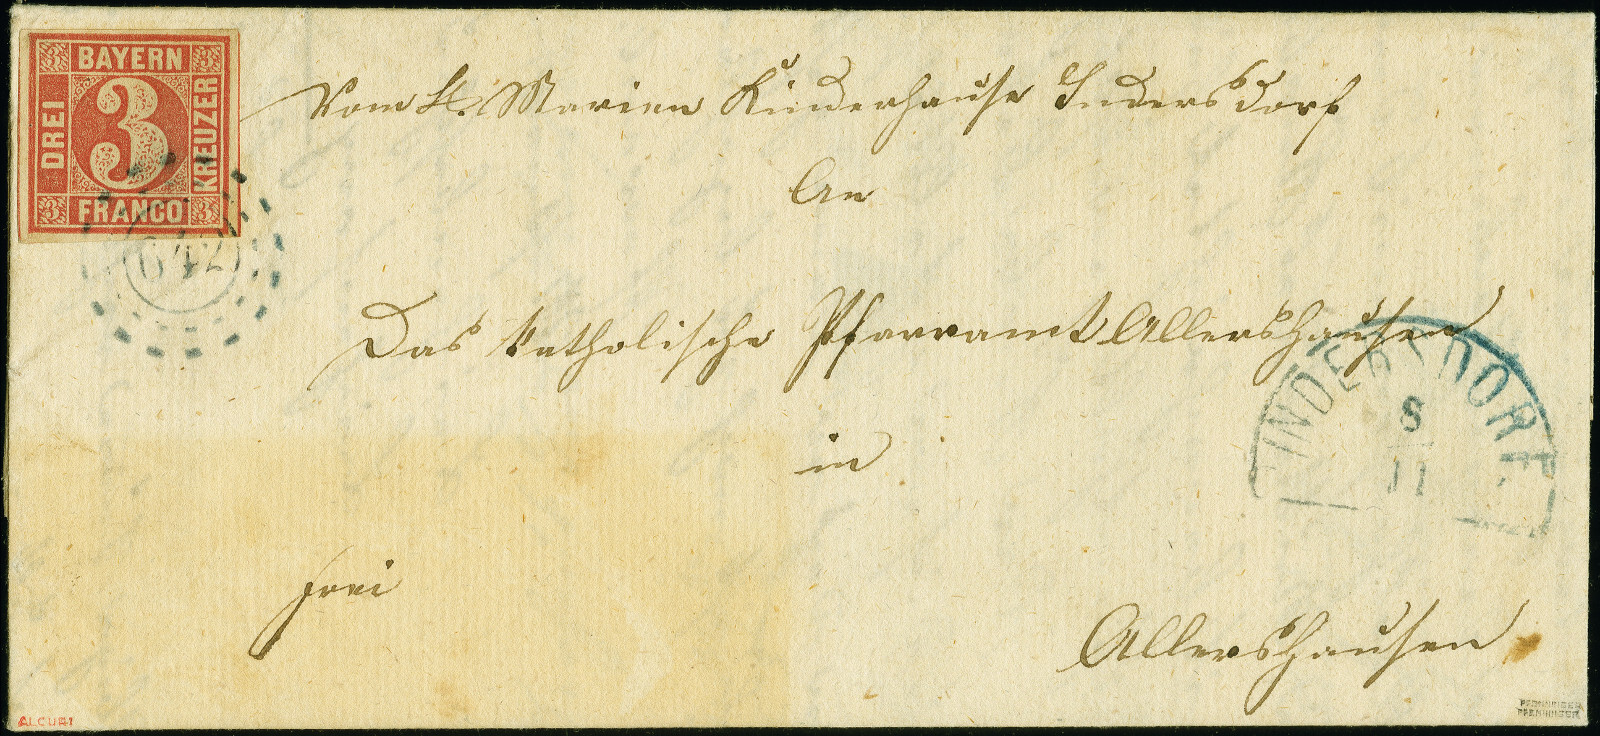 3 BAYERN 3
DREI 3 KREUZER
3 FRANCO 3
642
Vom St. Marien Kinderhause Indersdorf
An
Das katholische Pfarramt Allershausen
in
frei
Allershausen
INDERSDORF
8
11
PFENNINGER
PFENNINGER